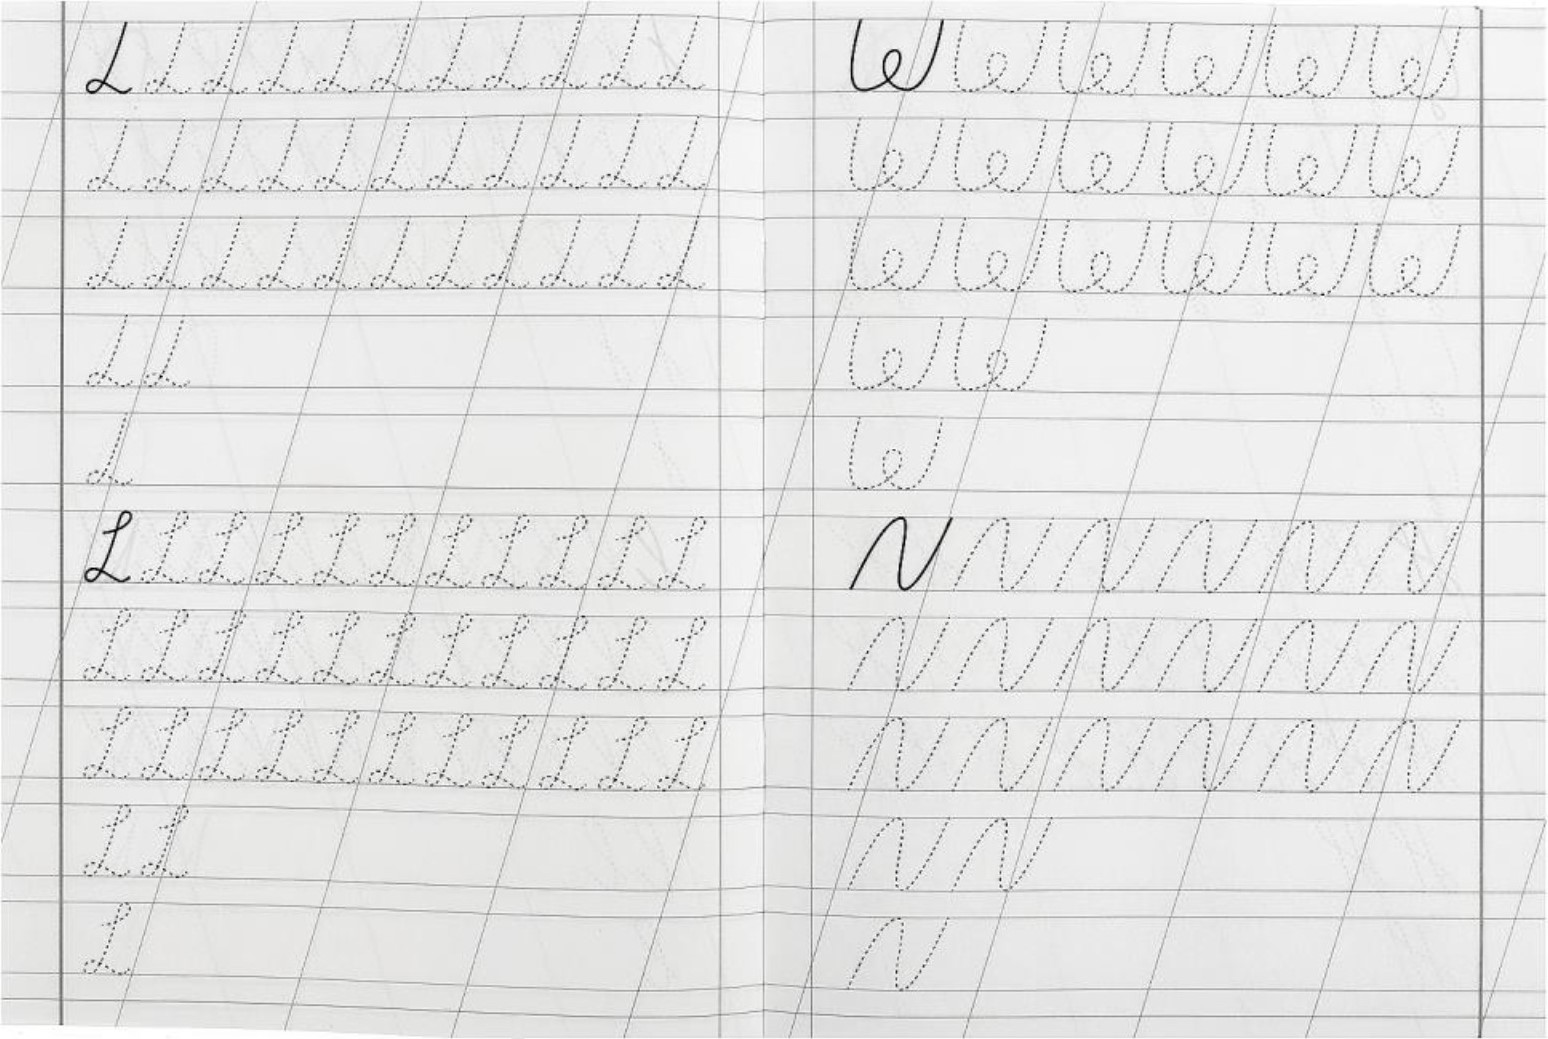 L L L L L L L L L L L
L L L L L L L L L L L
L L L L L L L L L L L
L L
L
L L L L L L L L L L L
L L L L L L L L L L L
L L L L L L L L L L L
L L
L
W W W W W W
W W W W W W
W W W W W W
W W
W
N N N N N N
N N N N N N
N N N N N N
N N
N